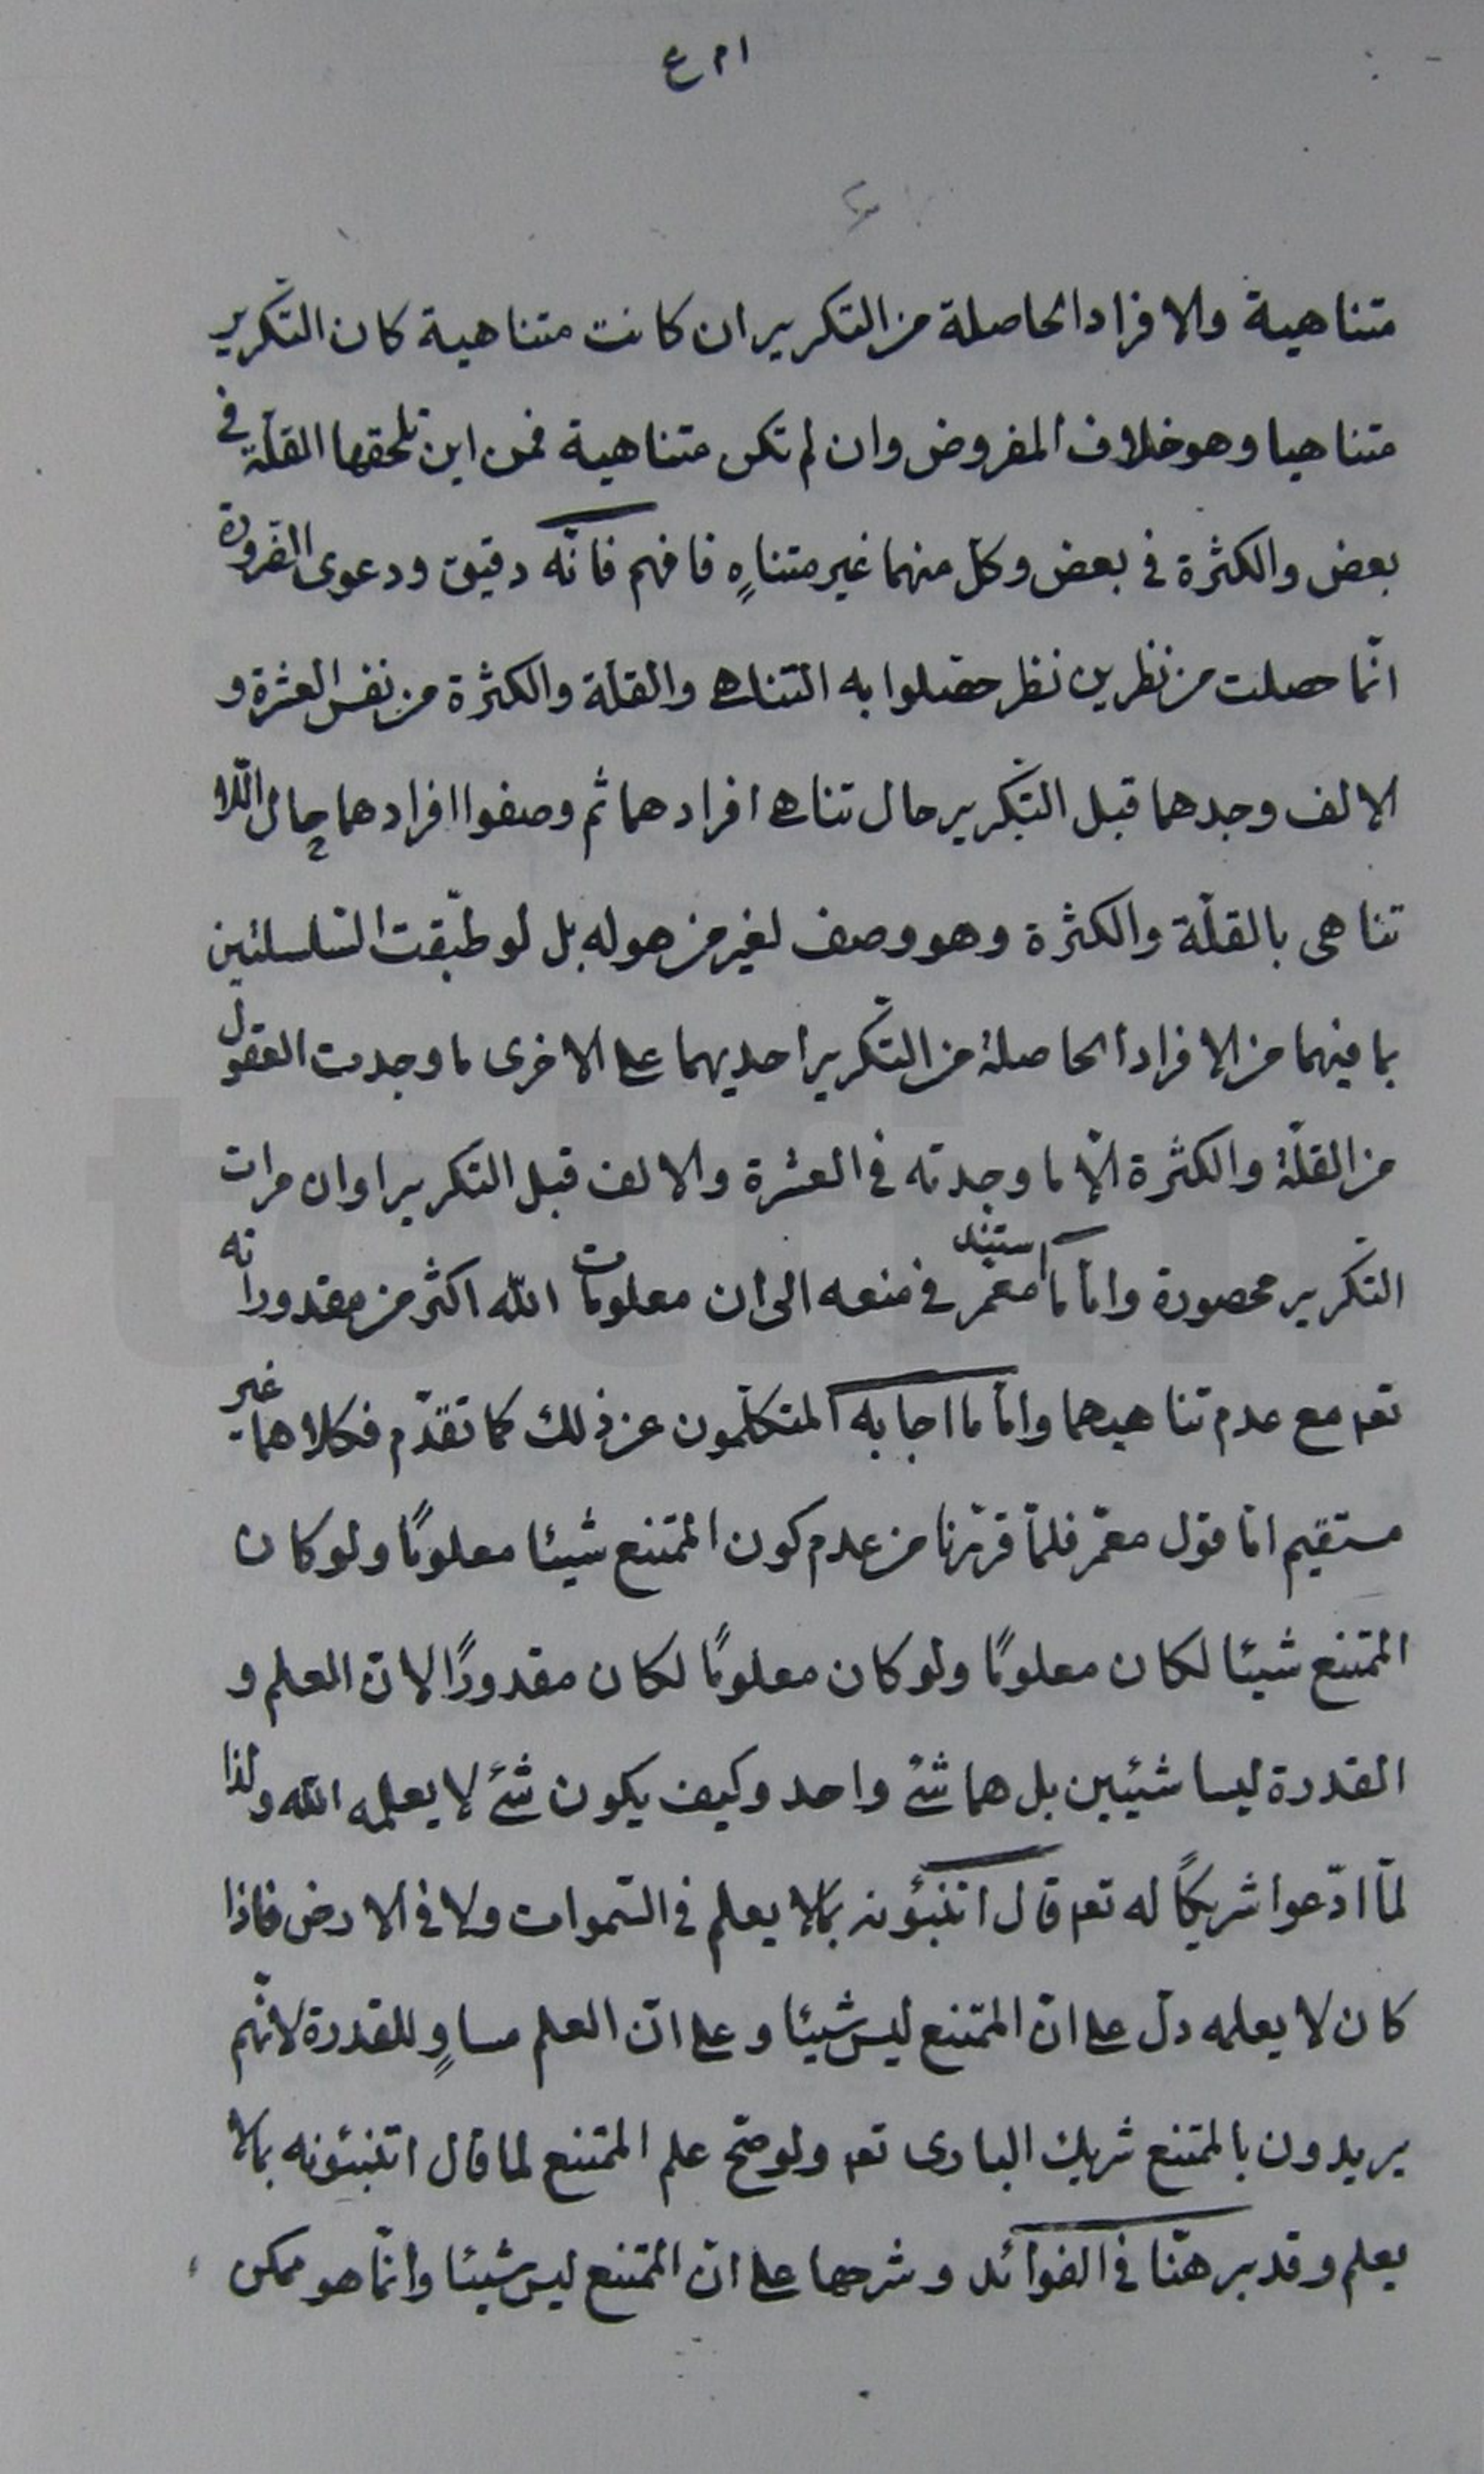 متناهية والافراد الحاصلة من التكرير ان كانت متناهية كان التكرير
متناهيا وهو خلاف المفروض وان لم تكن متناهية فمن اين تلحقها القلّة في
بعض والكثرة في بعض وكل منهما غير متناهٍ فافهم فانّه دقيق ودعوى الضرورة
انّما حصلت من نظرين نظر حصّلوا به التناهى والقلّة والكثرة من نفس العشرة و
الالف وجدهما قبل التكرير حال تناهى افرادهما ثم وصفوا افرادهما حال اللا
تناهى بالقلّة والكثرة وهو وصف لغير من هو له بل لو طبّقت السلسلتين
بما فيهما من الافراد الحاصلة من التكرير احديهما على الاخرى ما وجدت العقول
من القلّة والكثرة الّا ما وجدته في العشرة والالف قبل التكرير او ان مرات
التكرير محصورة وامّا ما استند معمّر في منعه الى ان معلومات الله اكثر من مقدوراته
تعم مع عدم تناهيهما وامّا ما اجاب به المتكلّمون عن ذلك كما تقدّم فكلاهما غير
مستقيم امّا قول معمّر فلمّا قرّرنا من عدم كون الممتنع شيئا معلومًا ولو كان
الممتنع شيئا لكان معلومًا ولو كان معلومًا لكان مقدورًا لانّ العلم و
القدرة ليسا شيئين بل هما شئ واحد وكيف يكون شئ لا يعلمه الله ولذا
لمّا ادّعوا شريكًا له تعم قال اتنبّؤنه بما لا يعلم في السّموات ولا في الارض فاذا
كان لا يعلمه دلّ على انّ الممتنع ليس شيئا وعلى انّ العلم مساوٍ للقدرة لانّهم
يريدون بالممتنع شريك البارى تعم ولو صحّ علم الممتنع لما قال اتنبئونه بما لا
يعلم وقد برهنّا في الفوائد وشرحها على انّ الممتنع ليس شيئا وانّما هو ممكن